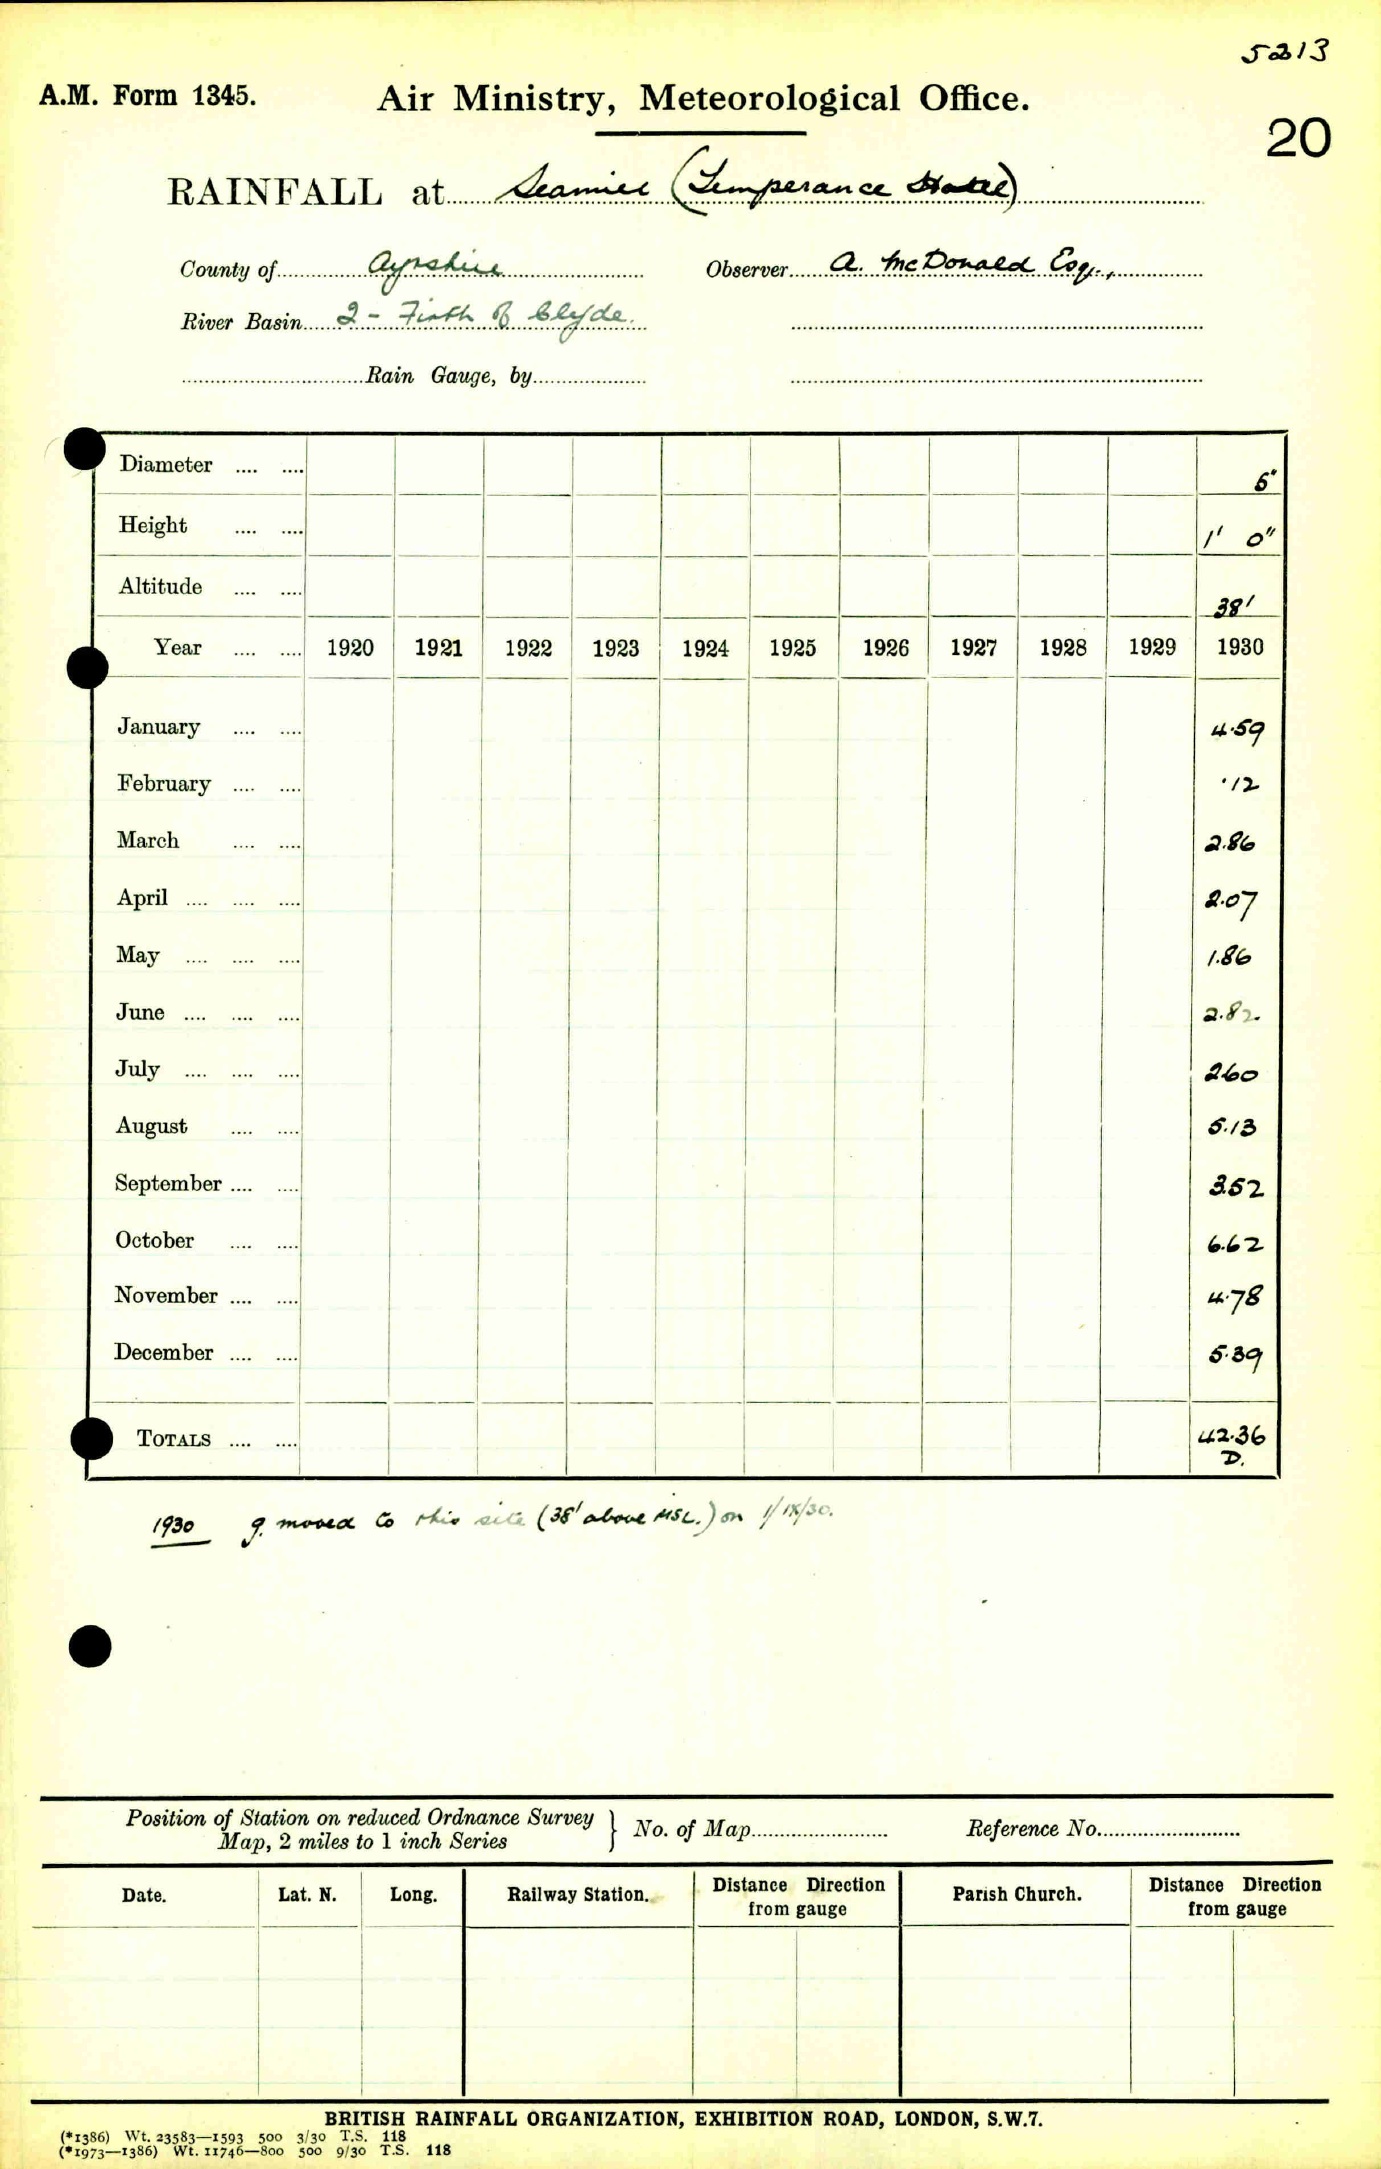 5213
A.M. Form 1345. Air Ministry, Meteorological Office.
20
RAINFALL at Seamill (Temperance Hotel)
County of Ayrshire Observer A. McDonald Esq.,
River Basin 2 - Firth of Clyde.
Rain Gauge, by
Diameter .... .... 5"
Height .... .... 1' 0"
Altitude .... .... 38'
Year .... .... 1920 1921 1922 1923 1924 1925 1926 1927 1928 1929 1930
January .... .... 4.59
February .... .... .12
March .... .... 2.86
April .... .... .... 2.07
May .... .... .... 1.86
June .... .... .... 2.82
July .... .... .... 2.60
August .... .... 5.13
September .... .... 3.52
October .... .... 6.62
November .... .... 4.78
December .... .... 5.39
TOTALS .... .... 42.36
D.
1930 g. moved to this site (38' above MSL.) on 1/IX/30.
Position of Station on reduced Ordnance Survey
Map, 2 miles to 1 inch Series } No. of Map Reference No.
Date. Lat. N. Long. Railway Station. Distance Direction from gauge Parish Church. Distance Direction from gauge
BRITISH RAINFALL ORGANIZATION, EXHIBITION ROAD, LONDON, S.W.7.
(*1386) Wt. 23583—1593 500 3/30 T.S. 118
(*1973—1386) Wt. 11746—800 500 9/30 T.S. 118